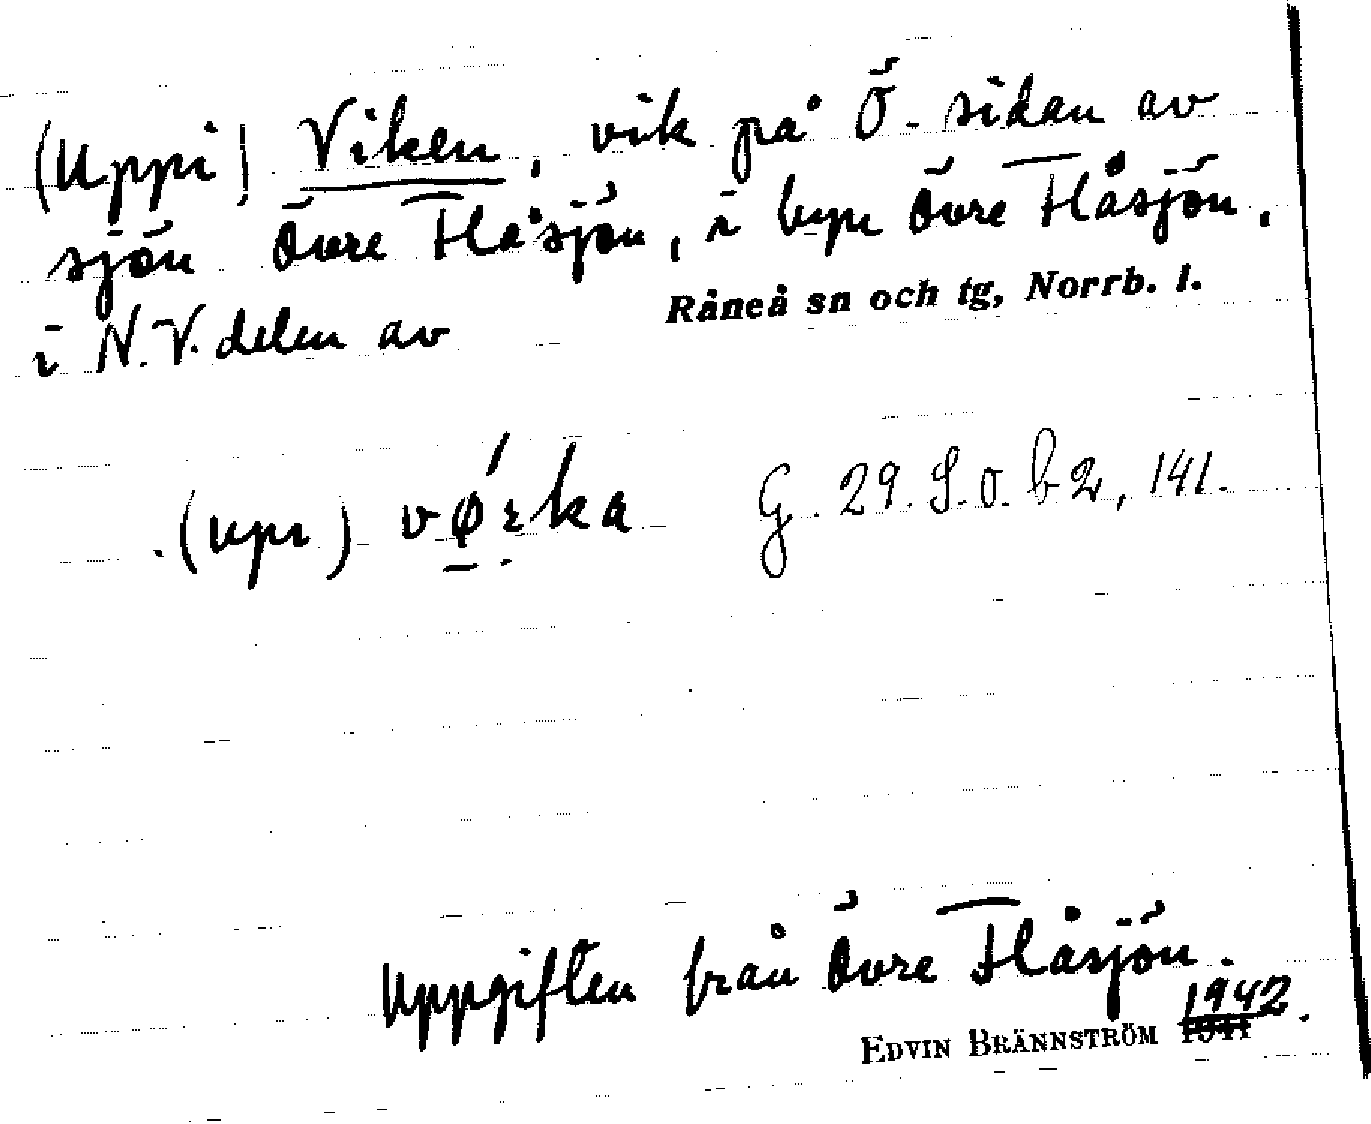 (Uppi) Viken, vik på Ö-sidan av
sjön Övre Flåsjön, i byn Övre Flåsjön,
i N.V. delen av Råneå sn och tg, Norrb. l.
(upi) vǿrka G. 29. S.o. b 2, 141.
Uppgiften från Övre Flåsjön.
EDVIN BRÄNNSTRÖM 1941 1942.